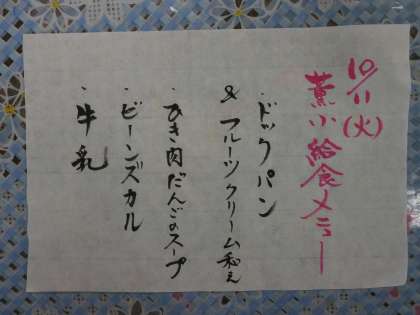 10/11(火)
薫小給食メニュー
・ドックパン
& フルーツクリーム和え
・ひき肉だんごのスープ
・ビーンズカル
・牛乳